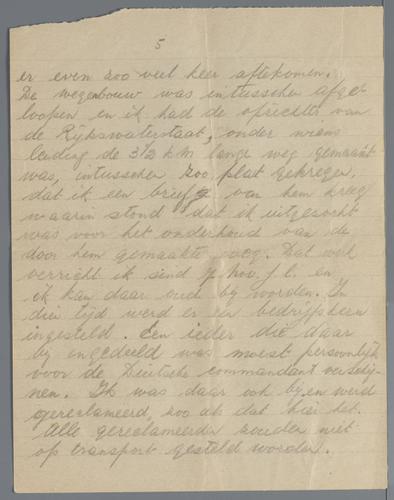 5
er even zoo veel keer aftekomen.
De wegenbouw was intusschen afge
loopen en ik had de opzichter van
de Rijkswaterstaat, onder wiens
leiding de 3½ km lange weg gemaakt
was, intusschen zoo plat gekregen,
dat ik een brief van hem kreeg
waarin stond dat ik uitgezocht
was voor het onderhoud van de
door hem gemaakte weg. Dat werk
verricht ik sind 7 nov. j.l. en
ik kan daar oud bij worden. In
die tijd werd er een bedrijfskern
ingesteld. Een ieder die daar
bij ingedeeld was moest persoonlijk
voor de Duitsche commandant verschij-
nen. Ik was daar ook bij en werd
gereclameerd, zoo als dat hier het.
Alle gereclameerden zouden niet
op transport gesteld worden.